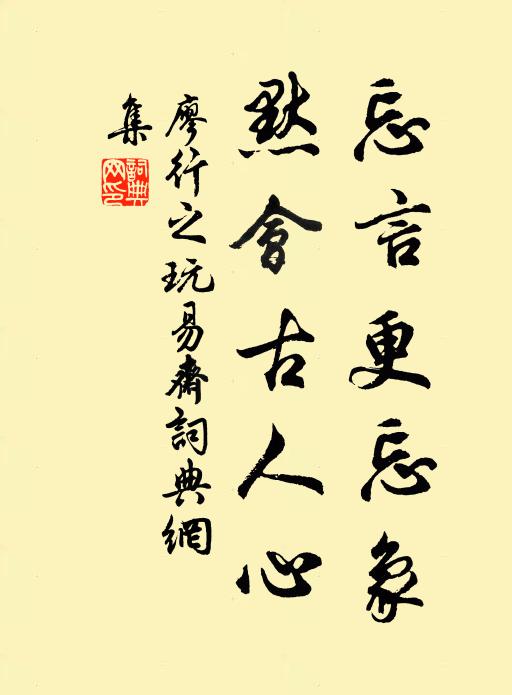 忘言更忘象
默會古人心
廖行之玩易齋詞典網
集
詞典
网印